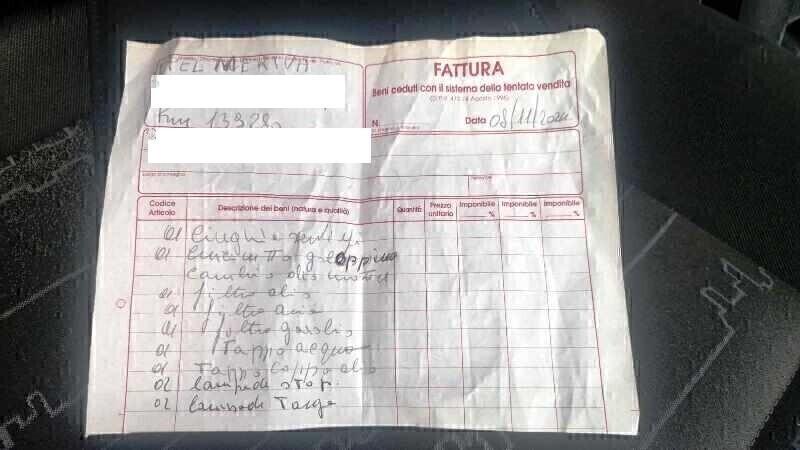 OPEL MERIVA
Km 139280
FATTURA
Beni ceduti con il sistema della tentata vendita
N.
Data 08/11/2024
Codice Articolo
Descrizione dei beni (natura e qualità)
Quantità
Prezzo unitario
Imponibile %
Imponibile %
Imponibile %
01 Cinghia servizi
01
cambio olio motore
01 filtro olio
01 filtro aria
01 filtro gasolio
01 Tappo acqua
01 Tappo coppa olio
02 lampade stop
02 lampade Targa